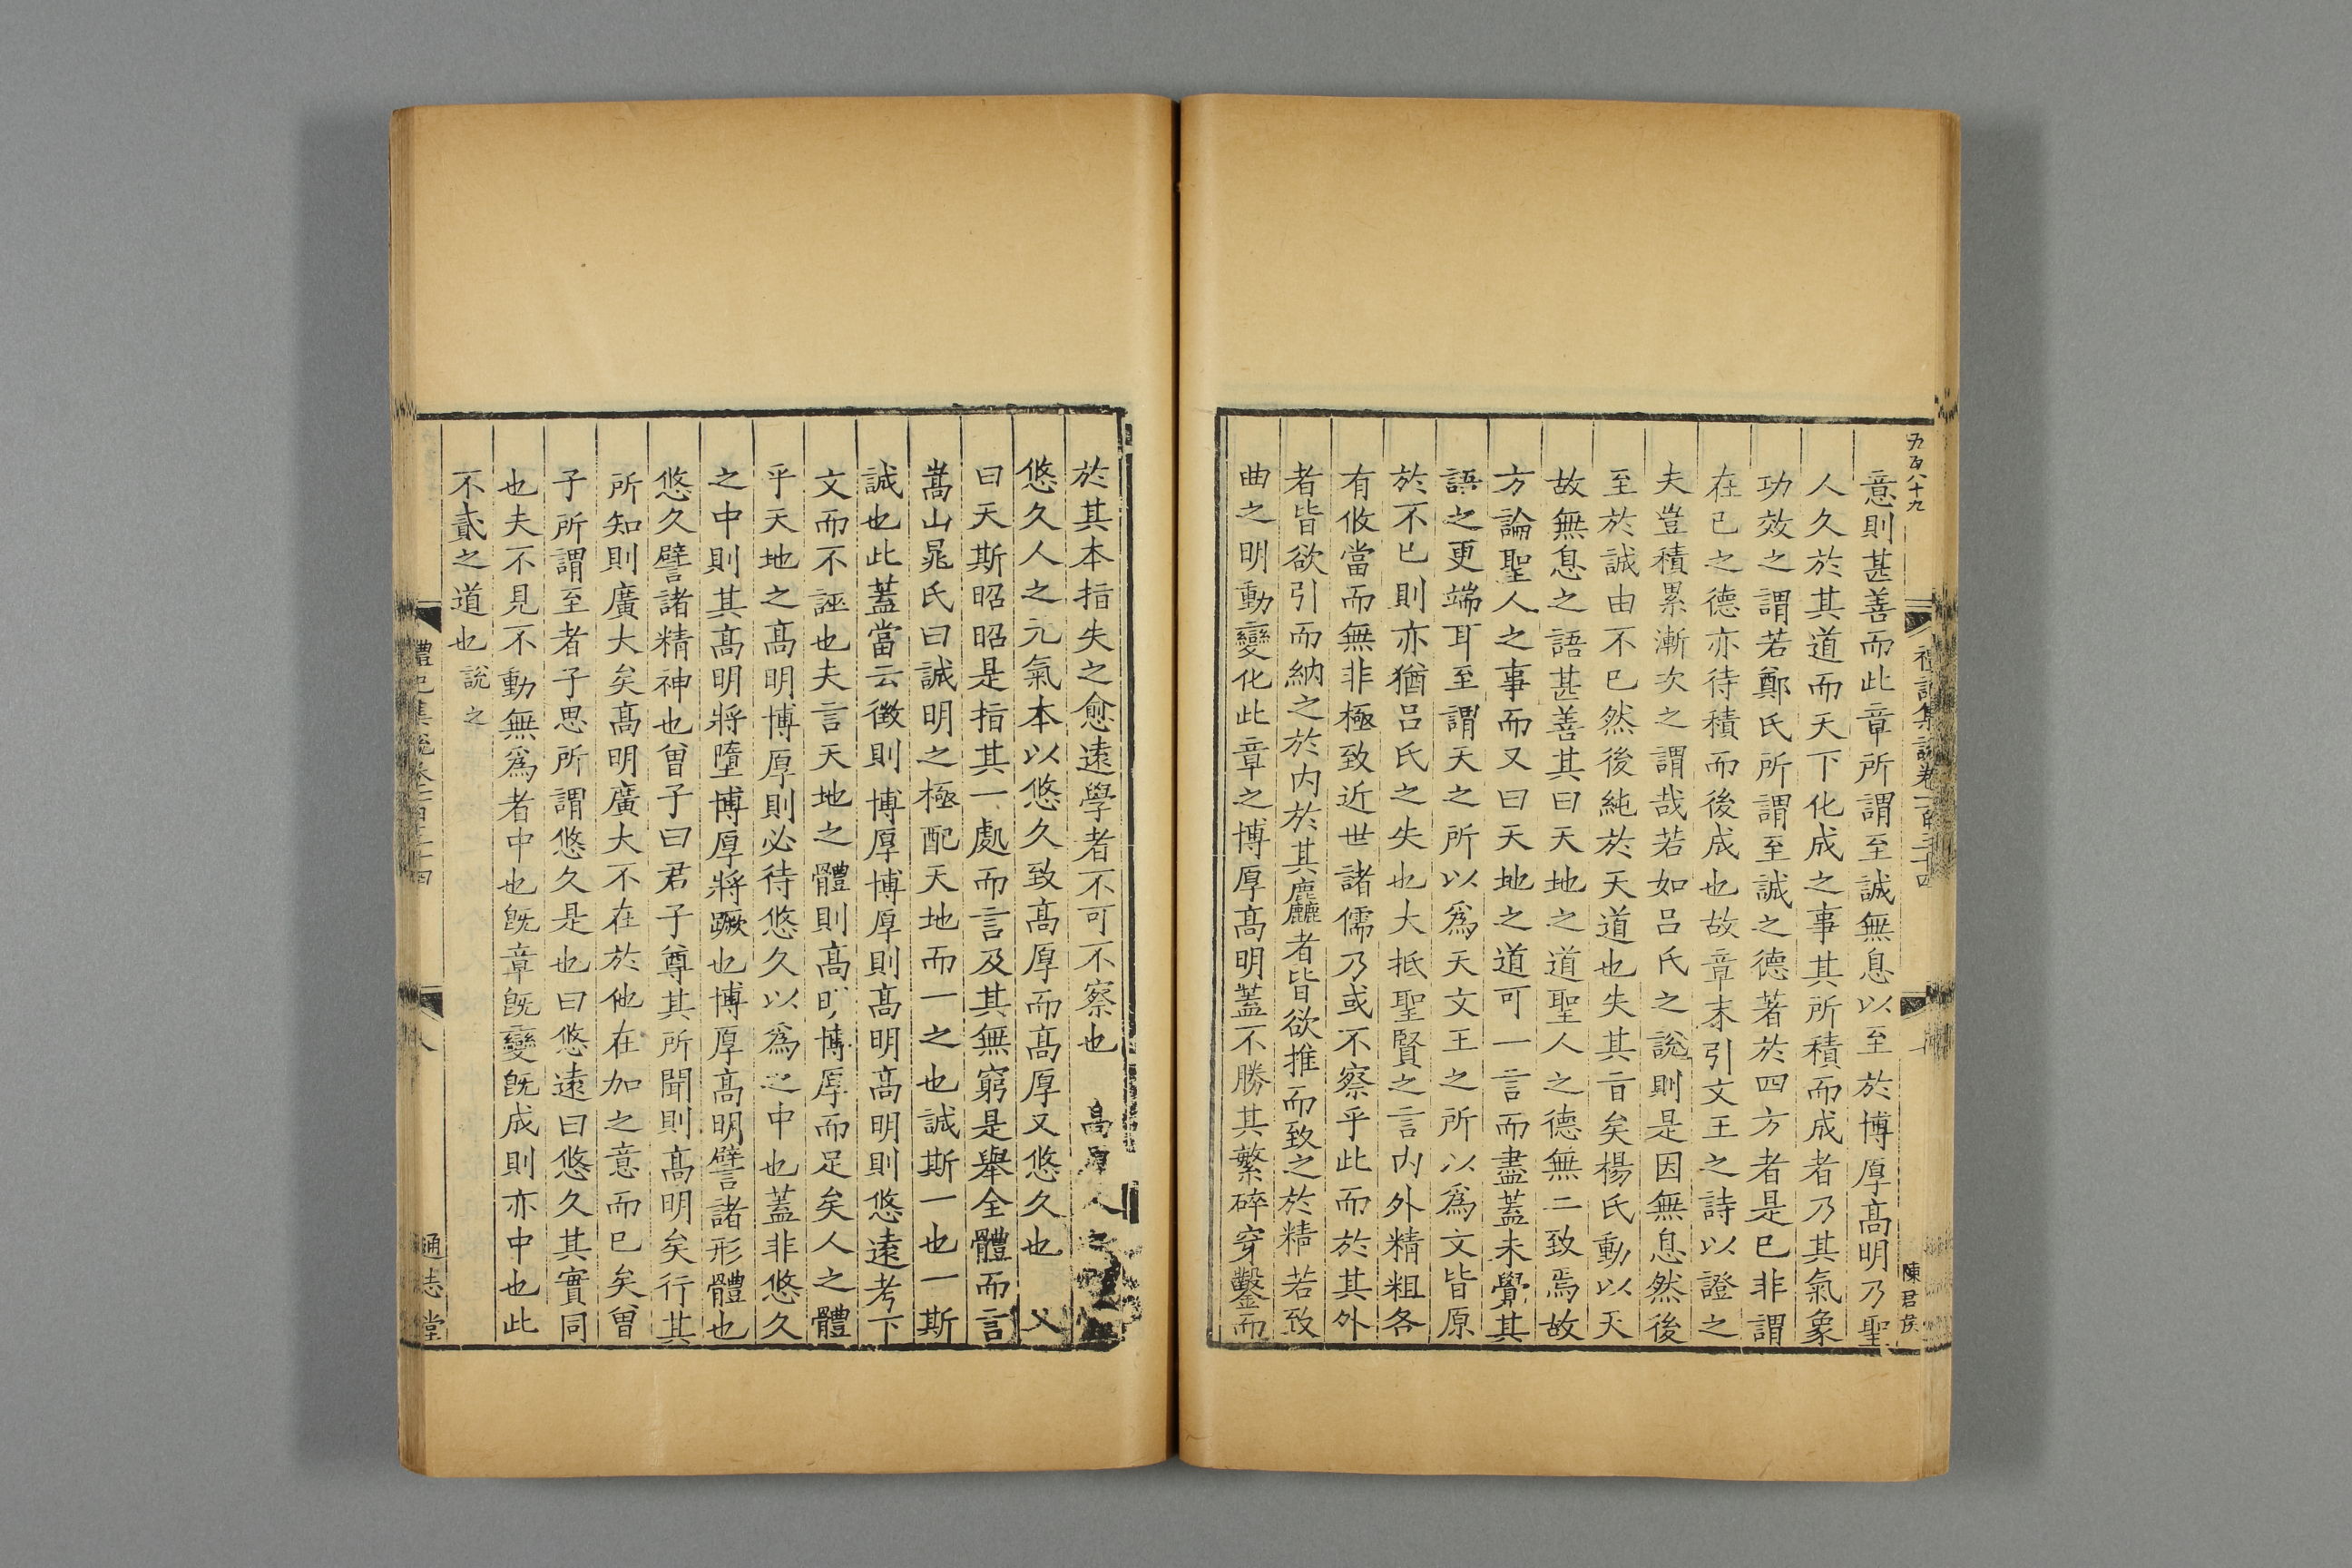 五百八十九
禮記集說卷一百三十四
陳君侯
意則甚善而此章所謂至誠無息以至於博厚髙明乃聖
人久於其道而天下化成之事其所積而成者乃其氣象
功效之謂若鄭氏所謂至誠之德著於四方者是已非謂
在已之德亦待積而後成也故章末引文王之詩以證之
夫豈積累漸次之謂哉若如吕氏之說則是因無息然後
至於誠由不已然後純於天道也失其旨矣楊氏動以天
故無息之語甚善其曰天地之道聖人之德無二致焉故
方論聖人之事而又曰天地之道可一言而盡蓋未覺其
語之更端耳至謂天之所以爲天文王之所以爲文皆原
於不已則亦猶吕氏之失也大抵聖賢之言內外精粗各
有攸當而無非極致近世諸儒乃或不察乎此而於其外
者皆欲引而納之於內於其麤者皆欲推而致之於精若致
曲之明動變化此章之博厚髙明蓋不勝其繁碎穿鑿而
於其本指失之愈遠學者不可不察也　髙厚人之
悠久人之元氣本以悠久致髙厚而髙厚又悠久也　又
曰天斯昭昭是指其一處而言及其無窮是舉全體而言
嵩山晁氏曰誠明之極配天地而一之也誠斯一也一斯
誠也此蓋當云徵則博厚博厚則髙明髙明則悠遠考下
文而不誣也夫言天地之體則髙明博厚而足矣人之體
乎天地之髙明博厚則必待悠久以爲之中也蓋非悠久
之中則其髙明將墮博厚將蹶也博厚髙明譬諸形體也
悠久譬諸精神也曽子曰君子尊其所聞則髙明矣行其
所知則廣大矣髙明廣大不在於他在加之意而已矣曽
子所謂至者子思所謂悠久是也曰悠遠曰悠久其實同
也夫不見不動無爲者中也旣章旣變旣成則亦中也此
不貳之道也說之
禮記集說卷一百三十四
八
通志堂